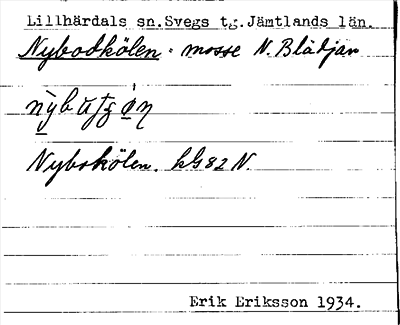 Lillhärdals sn. Svegs tg. Jämtlands län.
Nybodkölen. mosse N. Blädjan
Nybokölen. kG 82 N.
Erik Eriksson 1934.